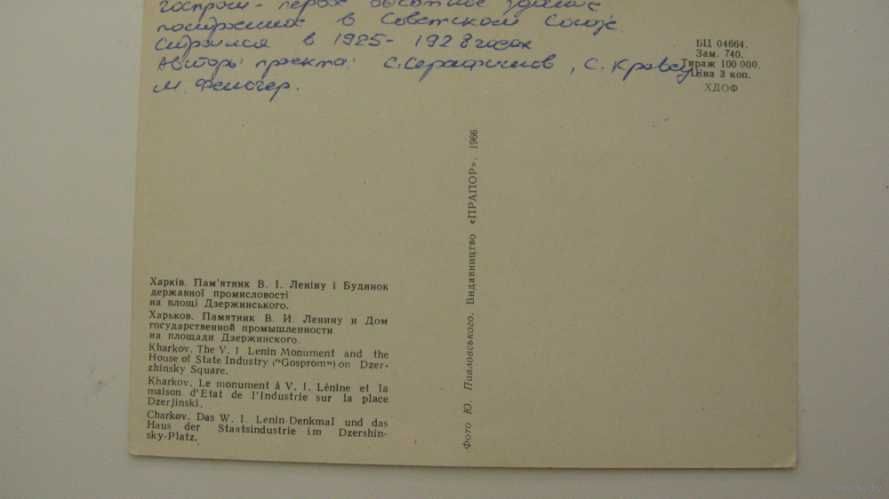 Госпром - первое высотное здание
построенное в Советском Союзе.
Строился в 1925-1928 годах
Авторы проекта: С. Серафимов, С. Кравец,
М. Фельгер.
БЦ 04664.
Зам. 740.
Тираж 100 000.
Ціна 3 коп.
ХДОФ
Харків. Пам'ятник В. І. Леніну і Будинок
державної промисловості
на площі Дзержинського.
Харьков. Памятник В. И. Ленину и Дом
государственной промышленности
на площади Дзержинского.
Kharkov. The V. I Lenin Monument and the
House of State Industry ("Gosprom") on Dzer-
zhinsky Square.
Kharkov. Le monument à V. I. Lénine et la
maison d'Etat de l'Industrie sur la place
Dzerjinski.
Charkov. Das W. I. Lenin-Denkmal und das
Haus der Staatsindustrie im Dzershin-
sky-Platz.
Фото Ю. Павловського. Видавництво «ПРАПОР». 1966